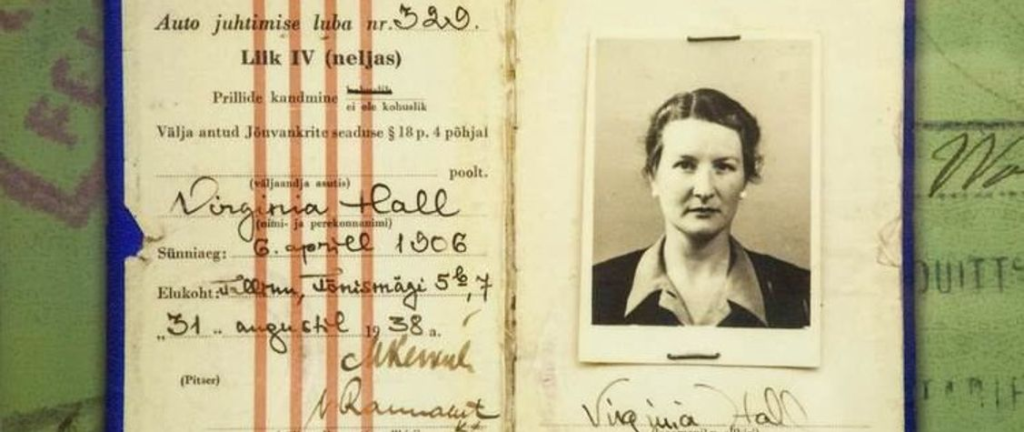 Auto juhtimise luba nr. 329.
Liik IV (neljas)
Prillide kandmine kohuslik
ei ole kohuslik
Välja antud Jõuvankrite seaduse § 18 p. 4 põhjal
poolt.
(väljaandja asutis)
Virginia Hall
(nimi- ja perekonnanimi)
Sünniaeg: 6. aprill 1906
Elukoht: Tallinn, Tõnismägi 5b, 7
"31" augustil 1938 a.
(Pitser)
Virginia Hall